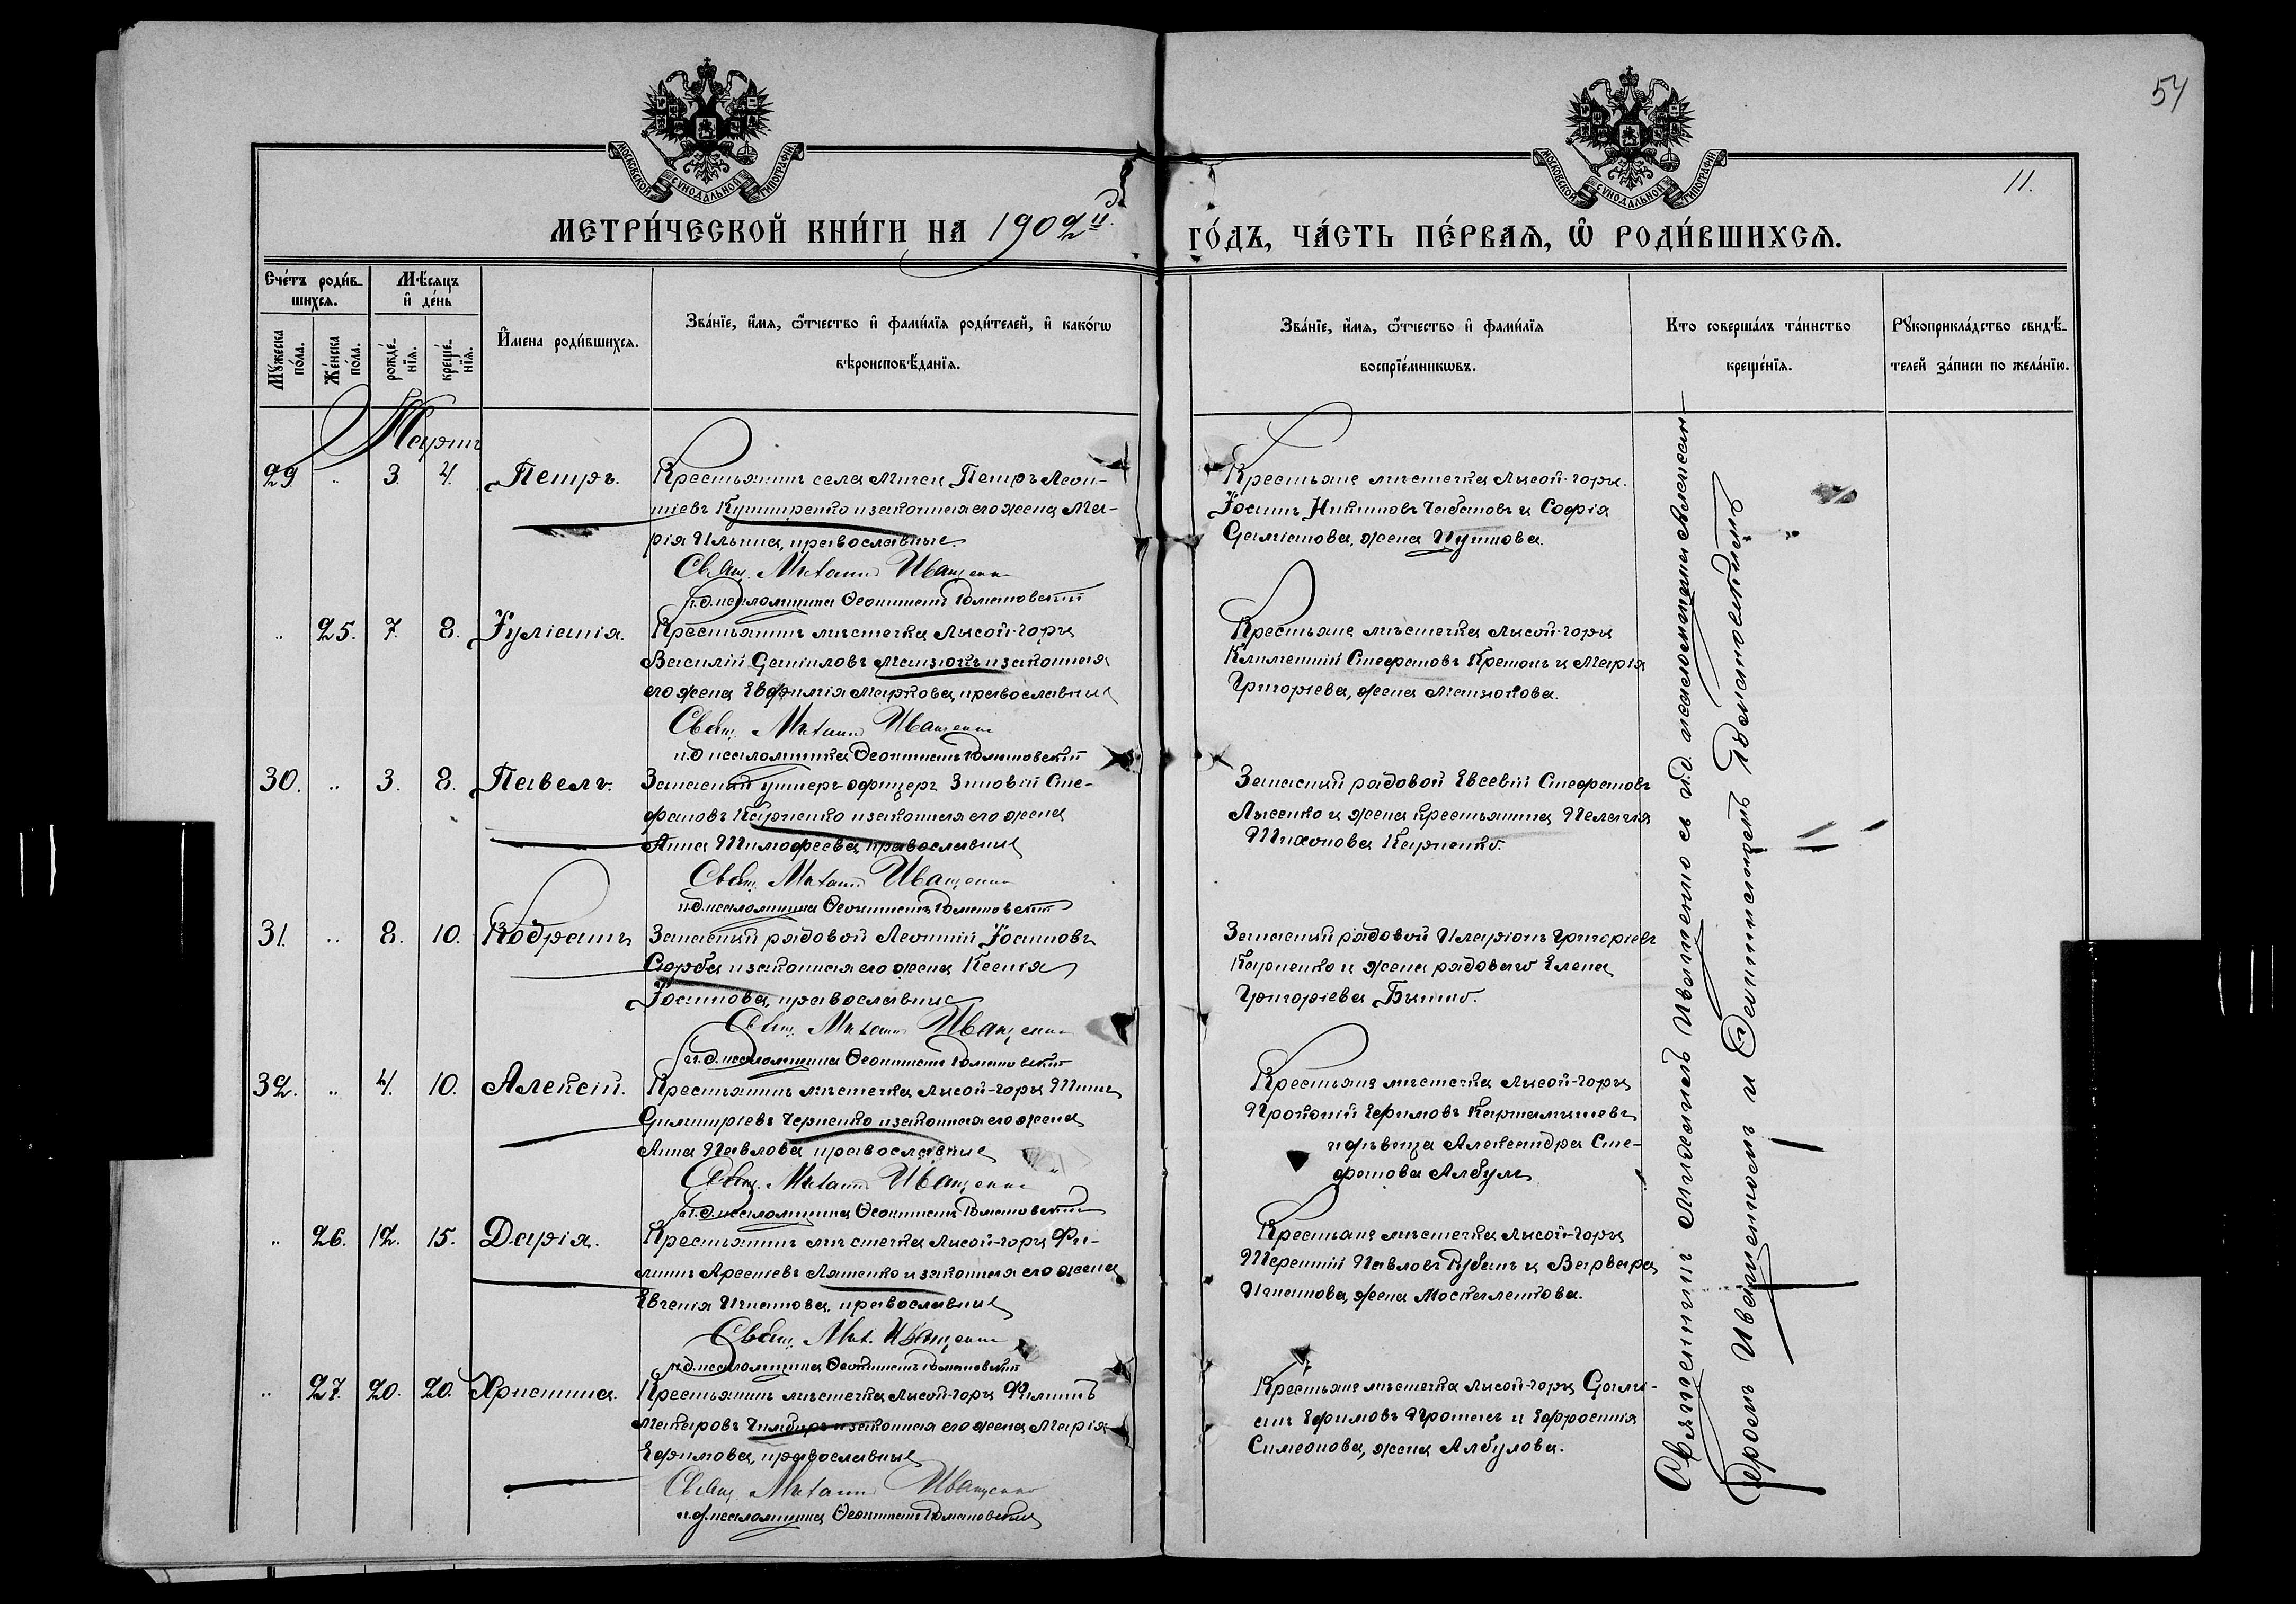 54
МОСКОВСКОЙ СѴНОДАЛЬНОЙ ТИПОГРАФІИ
МОСКОВСКОЙ СѴНОДАЛЬНОЙ ТИПОГРАФІИ
11.
МЕТРИ́ЧЕСКОЙ КНИ́ГИ НА 1902й.
ГО́ДЪ, ЧА́СТЬ ПЕ́РВАѦ, Ѡ҆ РОДИ́ВШИХСѦ.
Сче́тъ роди́в-
шихсѧ.
Мѣ́сѧцъ
и҆ де́нь
Мꙋ́жеска
по́ла.
Же́нска
по́ла.
рожде́-
нїѧ.
креще́-
нїѧ.
И҆мена роди́вшихсѧ.
Зва́нїе, и҆́мѧ, ѻ҆́тчество и҆ фами́лїѧ роди́телей, и҆ како́гѡ
вѣроисповѣ́данїѧ.
Зва́нїе, и҆́мѧ, ѻ҆́тчество и҆ фами́лїѧ
воспрїе́мникѡвъ.
Кто соверша́лъ та́инство
креще́нїѧ.
Рꙋкоприкла́дство свидѣ́-
телей за́писи по жела́нїю.
Мартъ
29. „ 3. 4. Петръ. Крестьянинъ села Мигеи Петръ Леон-
тіевъ Кушниренко и законная его жена Ма-
рія Ильина, православные.
Свящ. Михаилъ Иващенко
и.д. псаломщика Ѳеоктистъ Романовскій
Крестьяне мѣстечка Лысой-горы
Іоаннъ Никитовъ Чабановъ и Софія
Даміанова, жена
„ 25. 7. 8. Іуліанія. Крестьянинъ мѣстечка Лысой-горы
Василій Даніиловъ Мазюкъ и законная
его жена Евфимія Маркова, православные
Свящ. Михаилъ Иващенко
и.д. псаломщика Ѳеоктистъ Романовскій
Крестьяне мѣстечка Лысой-горы
Климентій Стефановъ и Марія
Григорьева, жена Мазюкова.
30. „ 3. 8. Павелъ. Запасный унтеръ-офицеръ Зиновій Сте-
фановъ Карпенко и законная его жена
Анна Тимофеева, православные
Свящ. Михаилъ Иващенко
и.д. псаломщика Ѳеоктистъ Романовскій
Запасный рядовой Евсевій Стефановъ
Лысенко и жена крестьянина Пелагія
Тихонова Карпенко.
31. „ 8. 10. Кодратъ Запасный рядовой Леонтій Іоанновъ
Скорба и законная его жена Ксенія
Іоаннова, православные
Свящ. Михаилъ Иващенко
и.д. псаломщика Ѳеоктистъ Романовскій
Запасный рядовой Иларіонъ Григоріевъ
Карпенко и жена рядового Елена
Григоріева
32. „ 4. 10. Алексій. Крестьянинъ мѣстечка Лысой-горы Титъ
Димитріевъ Черненко и законная его жена
Анна Павлова, православные
Свящ. Михаилъ Иващенко
и.д. псаломщика Ѳеоктистъ Романовскій
Крестьяне мѣстечка Лысой-горы
Прокопій Ефимовъ
и дѣвица Александра Сте-
фанова Албулъ
„ 26. 12. 15. Дарія. Крестьянинъ мѣстечка Лысой-горы Фи-
липпъ Арсеніевъ Ляшенко и законная его жена
Евгенія Игнатова, православные
Свящ. Мих. Иващенко
и.д. псаломщика Ѳеоктистъ Романовскій
Крестьяне мѣстечка Лысой-горы
Терентій Павловъ Рубанъ и Варвара
Игнатова, жена Москаленкова.
„ 27. 20. 20. Христина. Крестьянинъ мѣстечка Лысой-горы Филиппъ
Макаровъ Чимбиръ и законная его жена Марія
Ефимова, православные
Свящ. Михаилъ Иващенко
и.д. псаломщика Ѳеоктистъ Романовскій
Крестьяне мѣстечка Лысой-горы Дамі-
анъ Ефимовъ и Ефросинія
Симеонова, жена Албулова.
Священникъ Михаилъ Иващенко съ и.д. псаломщика Александромъ Иващенкомъ и Ѳеоктистомъ Романовскимъ